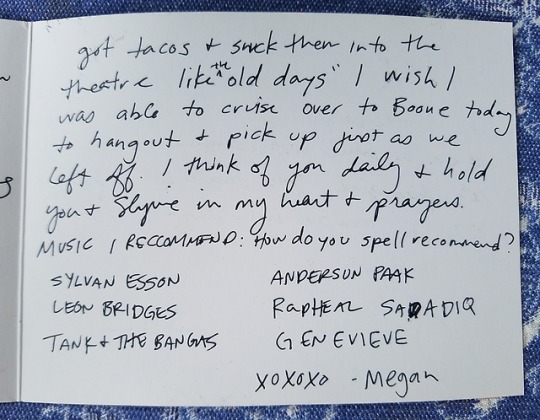 got tacos + snuck them into the
theatre like the "old days" I wish I
was able to cruise over to Boone today
to hangout + pick up just as we
left off. I think of you daily + hold
you + in my heart + prayers.
MUSIC I RECCOMMEND: How do you spell recommend?
SYLVAN ESSON ANDERSON PAAK
LEON BRIDGES RAPHEAL SADADIQ
TANK + THE BANGAS GENEVIEVE
XOXOXO - Megan